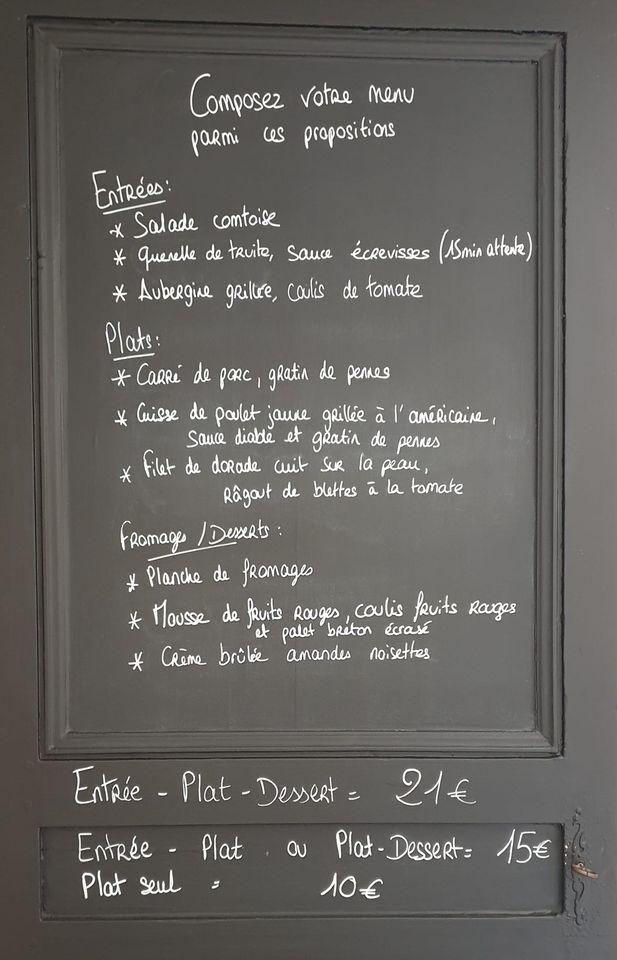 Composez votre menu
parmi ces propositions
Entrées:
* Salade comtoise
* Quenelle de truite, sauce écrevisses (15min attente)
* Aubergine grillée, coulis de tomate
Plats:
* Carré de porc, gratin de pennes
* Cuisse de poulet jaune grillée à l'américaine,
sauce diable et gratin de pennes
* Filet de dorade cuit sur la peau,
Râgout de blettes à la tomate
Fromages / Desserts:
* Planche de fromages
* Mousse de fruits rouges, coulis fruits rouges
et palet breton écrasé
* Crème brûlée amandes noisettes
Entrée - Plat - Dessert = 21€
Entrée - Plat ou Plat-Dessert = 15€
Plat seul = 10€